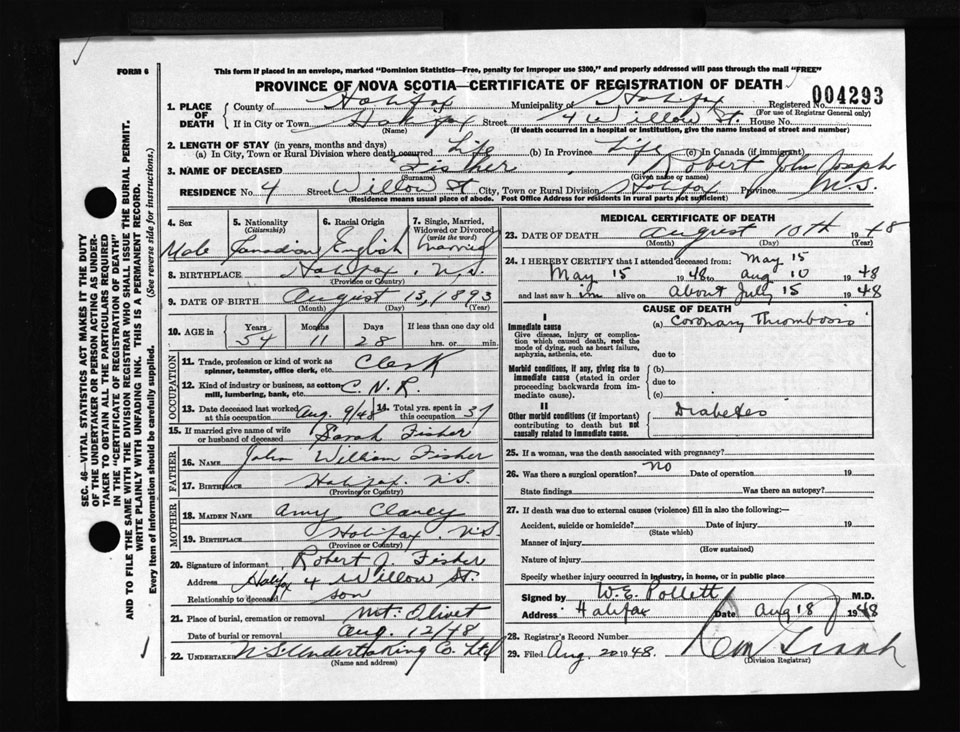 FORM 6
This form if placed in an envelope, marked "Dominion Statistics—Free, penalty for improper use $300," and properly addressed will pass through the mail "FREE"
PROVINCE OF NOVA SCOTIA—CERTIFICATE OF REGISTRATION OF DEATH
004293
1. PLACE OF DEATH County of Halifax Municipality of Halifax Registered No.
(For use of Registrar General only)
If in City or Town Halifax Street 4 Willow St. House No.
(Name) (If death occurred in a hospital or institution, give the name instead of street and number)
2. LENGTH OF STAY (in years, months and days)
(a) In City, Town or Rural Division where death occurred Life (b) In Province Life (c) In Canada (if immigrant)
3. NAME OF DECEASED Fisher Robert John Joseph
(Surname) (Given name or names)
RESIDENCE No. 4 Street Willow St City, Town or Rural Division Halifax Province N.S.
(Residence means usual place of abode. Post Office Address for residents in rural parts not sufficient)
4. Sex 5. Nationality (Citizenship) 6. Racial Origin 7. Single, Married, Widowed or Divorced (write the word)
Male Canadian English Married
8. BIRTHPLACE Halifax, N.S.
(Province or Country)
9. DATE OF BIRTH August 13, 1893
(Month) (Day) (Year)
10. AGE in Years Months Days If less than one day old
54 11 28 hrs. or min.
OCCUPATION
11. Trade, profession or kind of work as spinner, teamster, office clerk, etc. Clerk
12. Kind of industry or business, as cotton mill, lumbering, bank, etc. C.N.R.
13. Date deceased last worked at this occupation Aug. 9/48 14. Total yrs. spent in this occupation 37
15. If married give name of wife or husband of deceased Sarah Fisher
FATHER
16. Name John William Fisher
17. Birthplace Halifax, N.S.
(Province or Country)
MOTHER
18. MAIDEN NAME Amy Clancy
19. BIRTHPLACE Halifax, N.S.
(Province or Country)
20. Signature of informant Robert J. Fisher
Address Halifax 4 Willow St.
Relationship to deceased son
21. Place of burial, cremation or removal Mt. Olivet
Date of burial or removal Aug. 12/48
22. UNDERTAKER N.S. Undertaking Co. Ltd
(Name and address)
MEDICAL CERTIFICATE OF DEATH
23. DATE OF DEATH August 10th 1948
(Month) (Day) (Year)
24. I HEREBY CERTIFY that I attended deceased from May 15
May 15 1948 to Aug 10 1948
and last saw him alive on About July 15 1948
CAUSE OF DEATH
I
Immediate cause
Give disease, injury or complication which caused death, not the mode of dying, such as heart failure, asphyxia, asthenia, etc.
(a) Coronary Thrombosis
due to
Morbid conditions, if any, giving rise to immediate cause (stated in order proceeding backwards from immediate cause).
(b)
due to
(c)
II
Other morbid conditions (if important) contributing to death but not causally related to immediate cause.
Diabetes
25. If a woman, was the death associated with pregnancy?
26. Was there a surgical operation? no Date of operation 19
State findings Was there an autopsy?
27. If death was due to external causes (violence) fill in also the following:—
Accident, suicide or homicide? Date of injury 19
(State which)
Manner of injury
(How sustained)
Nature of injury
Specify whether injury occurred in industry, in home, or in public place
Signed by W.E. Pollett M.D.
Address Halifax Date Aug 18 1948
28. Registrar's Record Number
29. Filed Aug. 20 1948.
(Division Registrar)
SEC. 46—VITAL STATISTICS ACT MAKES IT THE DUTY
OF THE UNDERTAKER OR PERSON ACTING AS UNDER-
TAKER TO OBTAIN ALL THE PARTICULARS REQUIRED
IN THE "CERTIFICATE OF REGISTRATION OF DEATH"
AND TO FILE THE SAME WITH THE DIVISION REGISTRAR WHO SHALL ISSUE THE BURIAL PERMIT.
WRITE PLAINLY WITH UNFADING INK. THIS IS A PERMANENT RECORD.
Every item of information should be carefully supplied. (See reverse side for instructions.)